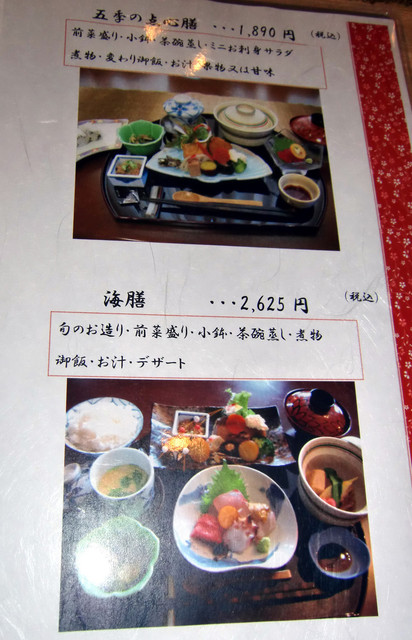 五季の点心膳 ・・・1,890円 (税込)
前菜盛り・小鉢・茶碗蒸し・ミニお刺身サラダ
煮物・変わり御飯・お汁・果物又は甘味
海膳 ・・・2,625円 (税込)
旬のお造り・前菜盛り・小鉢・茶碗蒸し・煮物
御飯・お汁・デザート